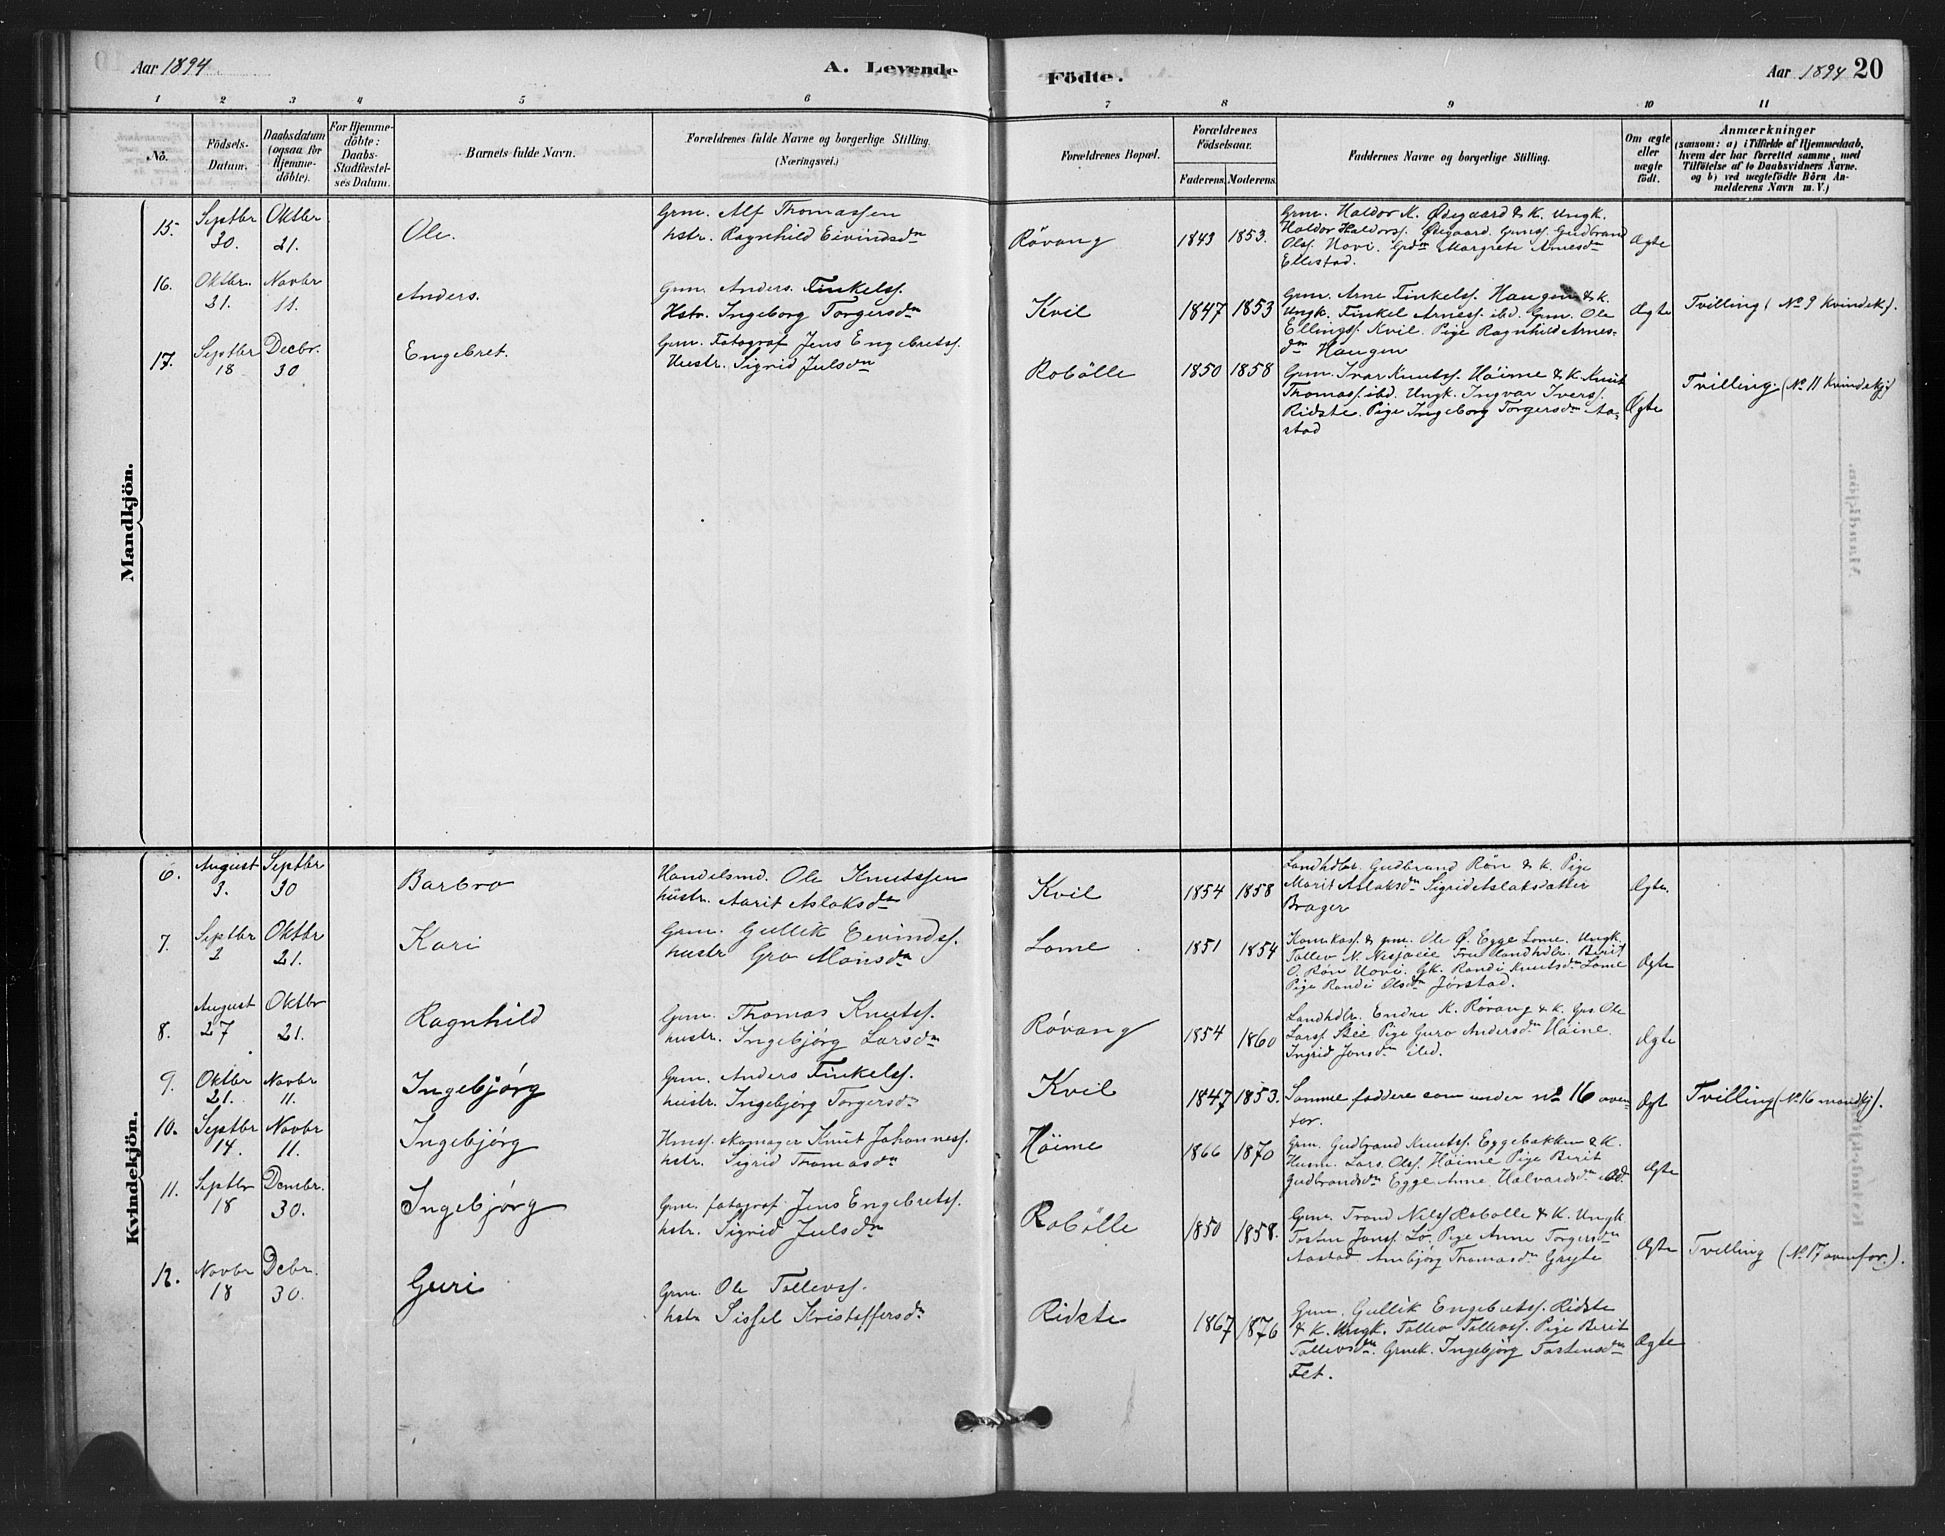 Aar 1894.
A. Levende
Födte.
Aar 1894 20
1 2 3 4 5 6 7 8 9 10 11
No.
Födsels-Datum.
Daabsdatum (ogsaa for Hjemme-döbte).
For Hjemme-döbte: Daabs-Stadfæstel-ses Datum.
Barnets fulde Navn.
Forældrenes fulde Navne og borgerlige Stilling.
(Næringsvei.)
Forældrenes Bopæl.
Forældrenes Födselsaar.
Faderens. Moderens.
Faddernes Navne og borgerlige Stilling.
Om ægte eller uægte födt.
Anmærkninger
(saasom: a) i Tilfælde af Hjemmedaab,
hvem der har forrettet samme, med
Tilföielse af to Daabsvidners Navne.
og b) ved uægtefödte Börn An-
melderens Navn m. V.)
Mandkjön.
15. Septbr 30. Oktbr 21. Ole.
Grm. Alf Thomassen
hstr. Ragnhild Eivindsdn
Røvang 1843 1853.
Grm. Haldor K. Ødegaard & K. Ungk.
Haldor Haldorss. Ødegaard. Gudbrand
Olss. Hovi. Margrete Arnesdn
Ellestad.
Ægte
16. Oktbr. 21. Novbr 11. Anders.
Grm. Anders Finkelss.
Hstr. Ingeborg Torgersdn
Kvil 1847 1853
Grm. Arne Finkelss. Haugen & K.
Ungk. Finkel Arness. ibd. Grm. Ole
Ellingss. Kvil. Pige Ragnhild Arnes-
dn Haugen
Ægte
Tvilling (No 9 kvindek).
17. Septbr 18 Decbr. 30 Engebret.
Grm. Fotograf Jens Engebretss.
Hustr. Sigrid Julsdn
Robölle 1850 1858
Grm. Ivar Knutss. Höime & K. Knut
Thomass. ibd. Ungk. Ingvar Ivers.
Ridste. Pige Ingeborg Torgersdn Aa-
stad
Ægte
Tvilling. (No 11 kvindekj)
Kvindekjön.
6. August 3. Septbr 30 Barbro
Handelsmd. Ole Knutssen
hustr. Marit Aslaksdn
Kvil 1854 1858
Landhdlr. Gudbrand Røn & K. Pige
Marit Aslaksdn Sigrid Aslaksdatter
Brager
Ægte.
7. Septbr 2 Oktbr 21. Kari
Grm. Gullik Eivindss.
hustr Gro Monsdn
Lome 1851 1854
& grm. Ole Ø. Egge Lome. Ungk.
Tollev N. Fru Landhdlr. Berit
O. Røn Hovi. Gk. Randi Knutsdn Lome
Pige Randi Olsdn Jørstad.
Ægte
8. August 27 Oktbr 21. Ragnhild
Grm. Thomas Knutss.
hustr. Ingebjörg Larsdn
Røvang 1854 1860
Landhdlr. Endre K. Røvang & K. Ole
Larss. Pige Guro Andersdn Höine.
Ingrid Jonsdn ibd.
Ægte
9. Oktbr 21. Novbr 11. Ingebjørg
Grm. Anders Finkelss.
hustr. Ingebjörg Torgersdn
Kvil 1847 1853.
Samme faddere som under No 16 oven-
for.
Ægt
Tvilling (No 16 mandkj).
10. Septbr 14. Novbr 11. Ingebjørg
Hmss. skomager Knut Johanness.
hstr. Sigrid Thomasdn
Höime 1866 1870
Grm. Gudbrand Knutss. Eggebakken & K.
Husm. Lars Olss. Höime Pige Berit
Gudbrandsdn Egge Anne Halvardsdn ibd.
Ægte
11. Septbr 18 Dcmbr. 30. Ingebjørg
Grm. fotograf Jens Engebretss.
hstr. Sigrid Julsdn
Robölle 1850 1858.
Grm. Trond Nilss Robölle & K. Ungk.
Tosten Jonss. Lø Pige Anne Torgersdn
Aastad Anbjörg Thomasdn Gryte
Ægte
Tvilling (No. 17 ovenfor.).
12. Novbr 18 Dcbr. 30. Guri
Grm. Ole Tollevss.
hstr Sissel Kristoffersdn
Ridste 1867 1876
Grm. Gullik Engebretss. Ridste
& K. Ungk. Tollev Tollevss. Pige Berit
Tollevsdn. Ingebjörg Tostensdn
Fet.
Ægte